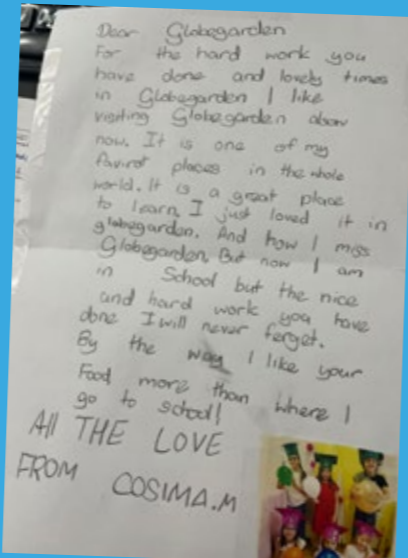 Dear Globegarden
For the hard work you
have done and lovely times
in Globegarden I like
visiting Globegarden
now. It is one of my
favirot places in the whole
world. It is a great place
to learn. I just loved it in
globegarden. And how I miss
Globegarden. But now I am
in School but the nice
and hard work you have
done I will never ferget.
By the way I like your
Food more than where I
go to school!
All THE LOVE
FROM COSIMA.M